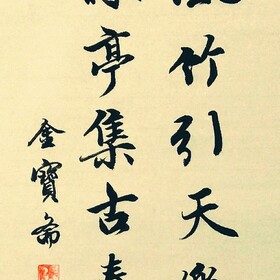 竹引天
亭集古
金寶齋